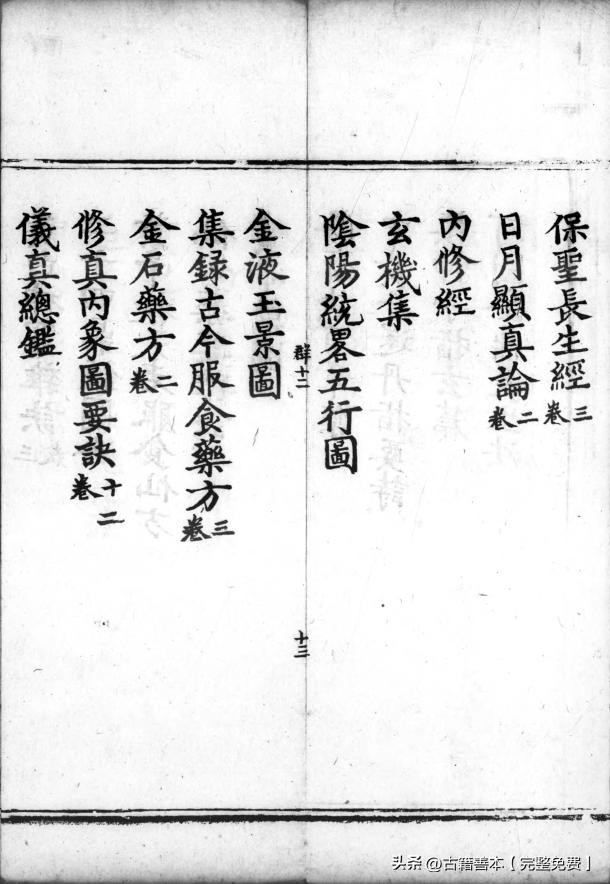 保聖長生經三卷
日月顯真論二卷
內修經
玄機集
陰陽統畧五行圖
群十二
十三
金液玉景圖
集録古今服食藥方三卷
金石藥方二卷
修真內象圖要訣十二卷
儀真總鑑
头条 @古籍善本【完整免费】